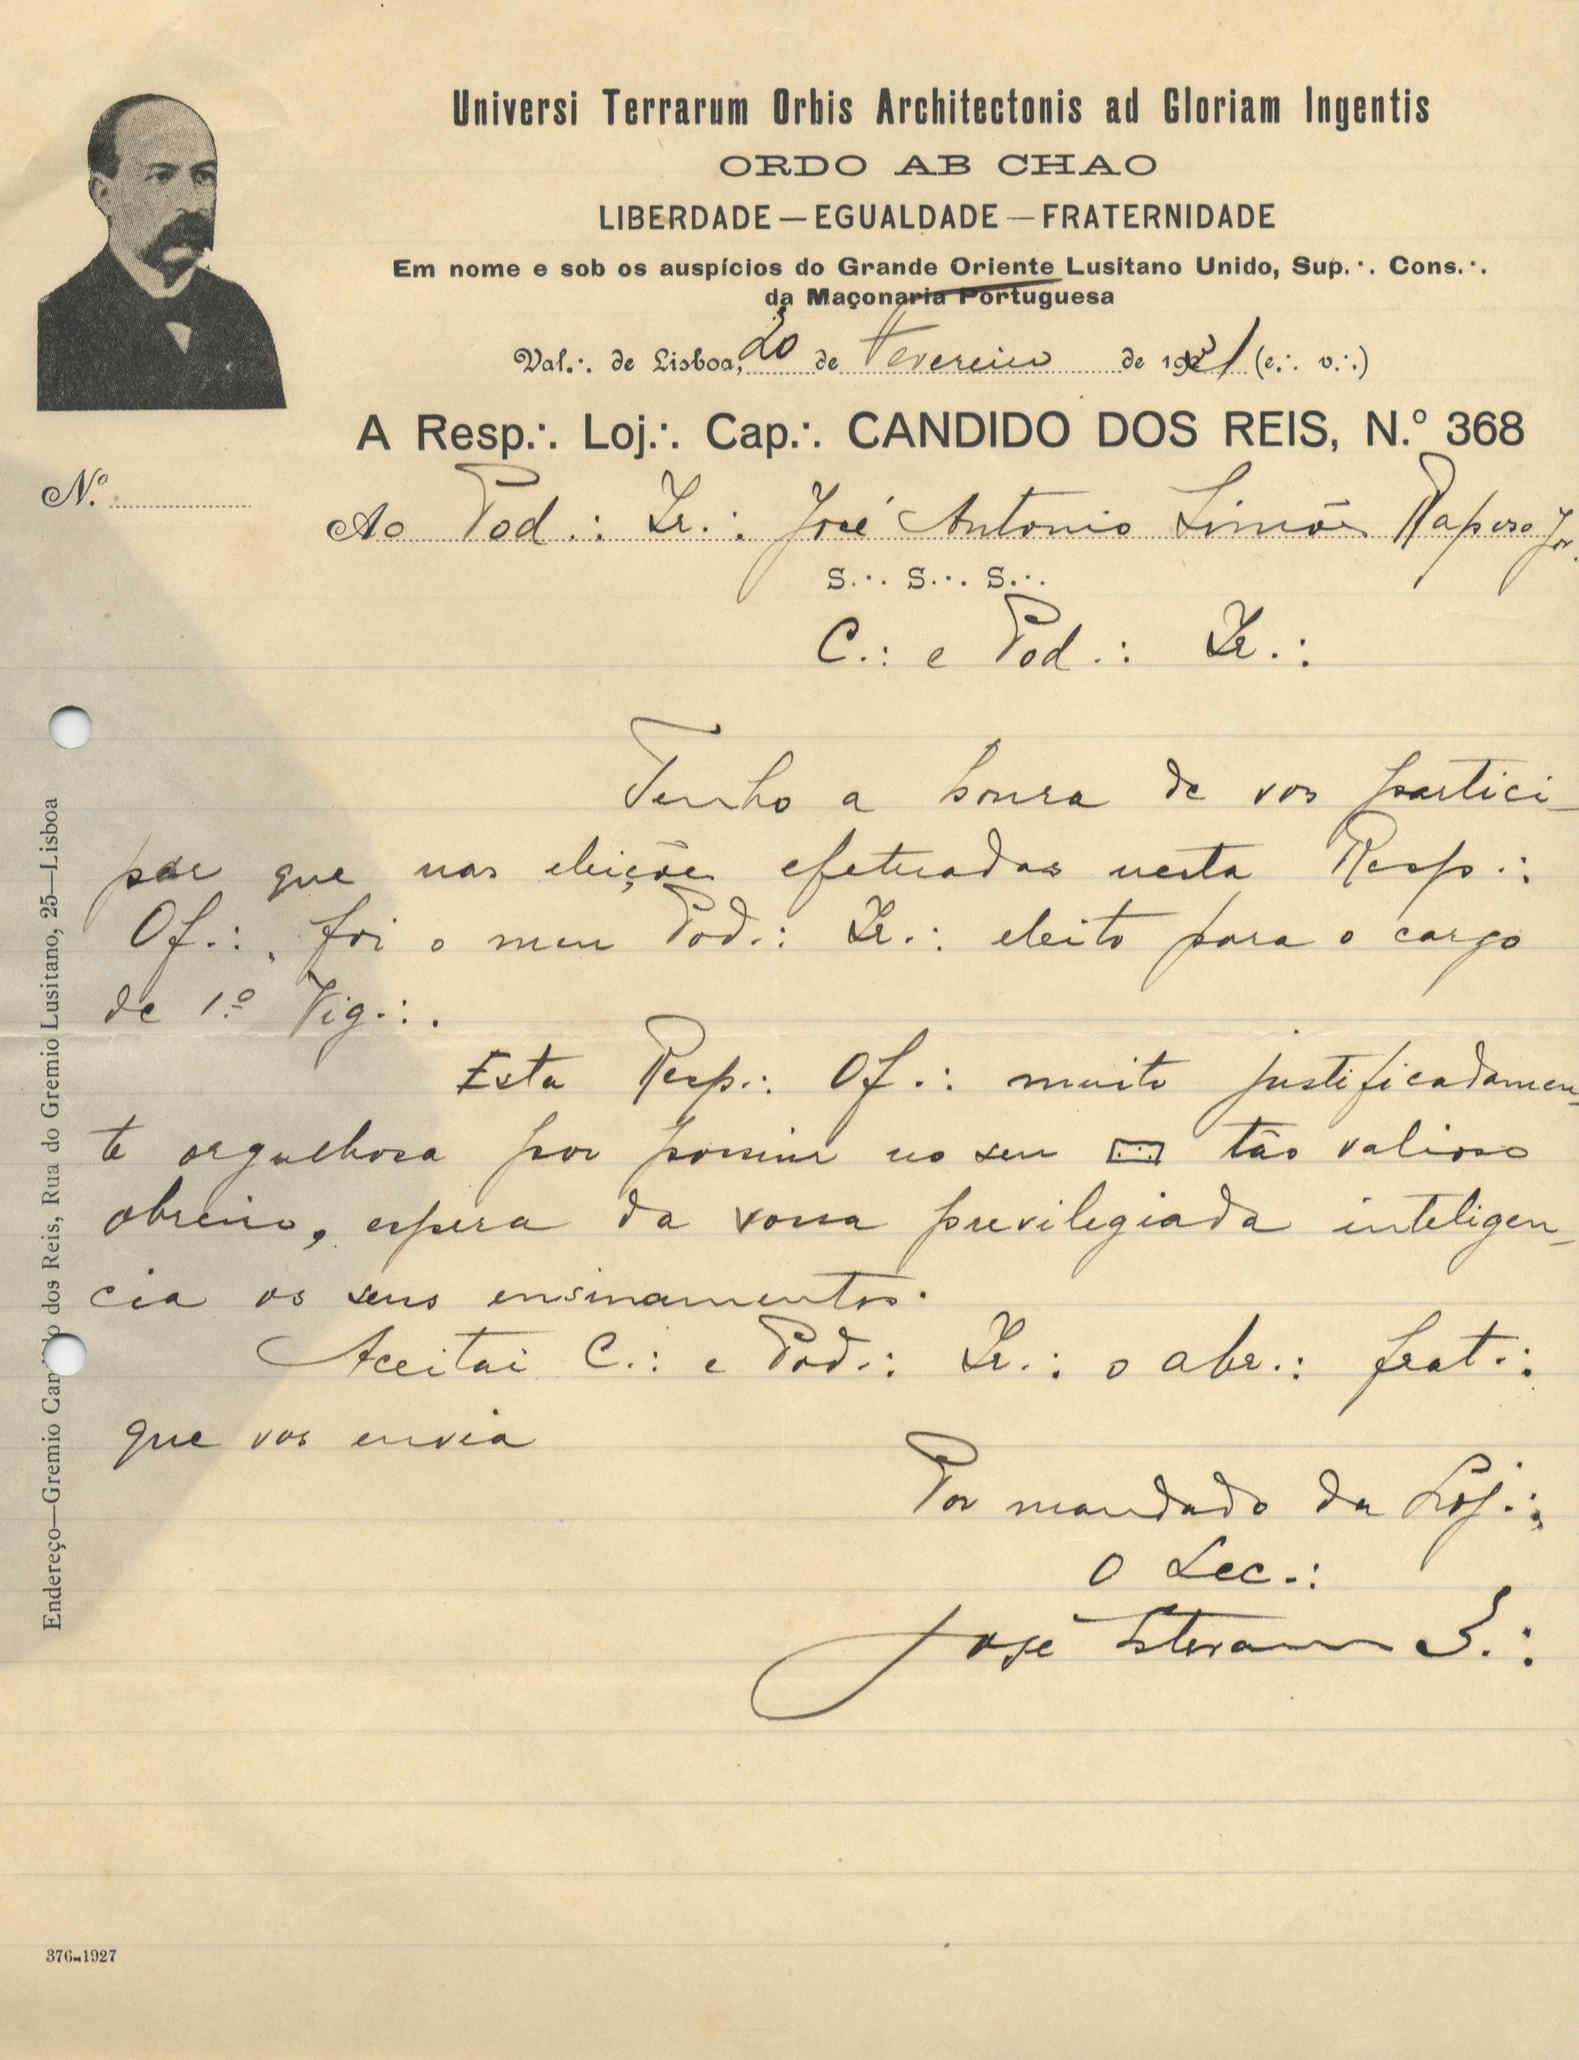 Universi Terrarum Orbis Architectonis ad Gloriam Ingentis
ORDO AB CHAO
LIBERDADE — EGUALDADE — FRATERNIDADE
Em nome e sob os auspícios do Grande Oriente Lusitano Unido, Sup.·. Cons.·.
da Maçonaria Portuguesa
Val.·. de Lisboa, 20 de Fevereiro de 1931 (e.·. v.·.)
A Resp.·. Loj.·. Cap.·. CANDIDO DOS REIS, N.º 368
N.º
Ao Pod.: Ir.: José Antonio Simões Raposo Jor.
S.·. S.·. S.·.
C.: e Pod.: Ir.:
Tenho a honra de vos partici-
par que nas eleições efetuadas nesta Resp.:
Of.:, foi o meu Pod.: Ir.: eleito para o cargo
de 1.º Vig.:.
Esta Resp.: Of.: muito justificadamen-
te orgulhosa por possuir no seu tão valioso
obreiro, espera da vossa previlegiada inteligen-
cia os seus ensinamentos.
Aceitai C.: e Pod.: Ir.: o abr.: frat.:
que vos envia
Por mandado da Loj.:,
O Sec.:
José Estevam 3.:
Endereço—Gremio Candido dos Reis, Rua do Gremio Lusitano, 25—Lisboa
376-1927